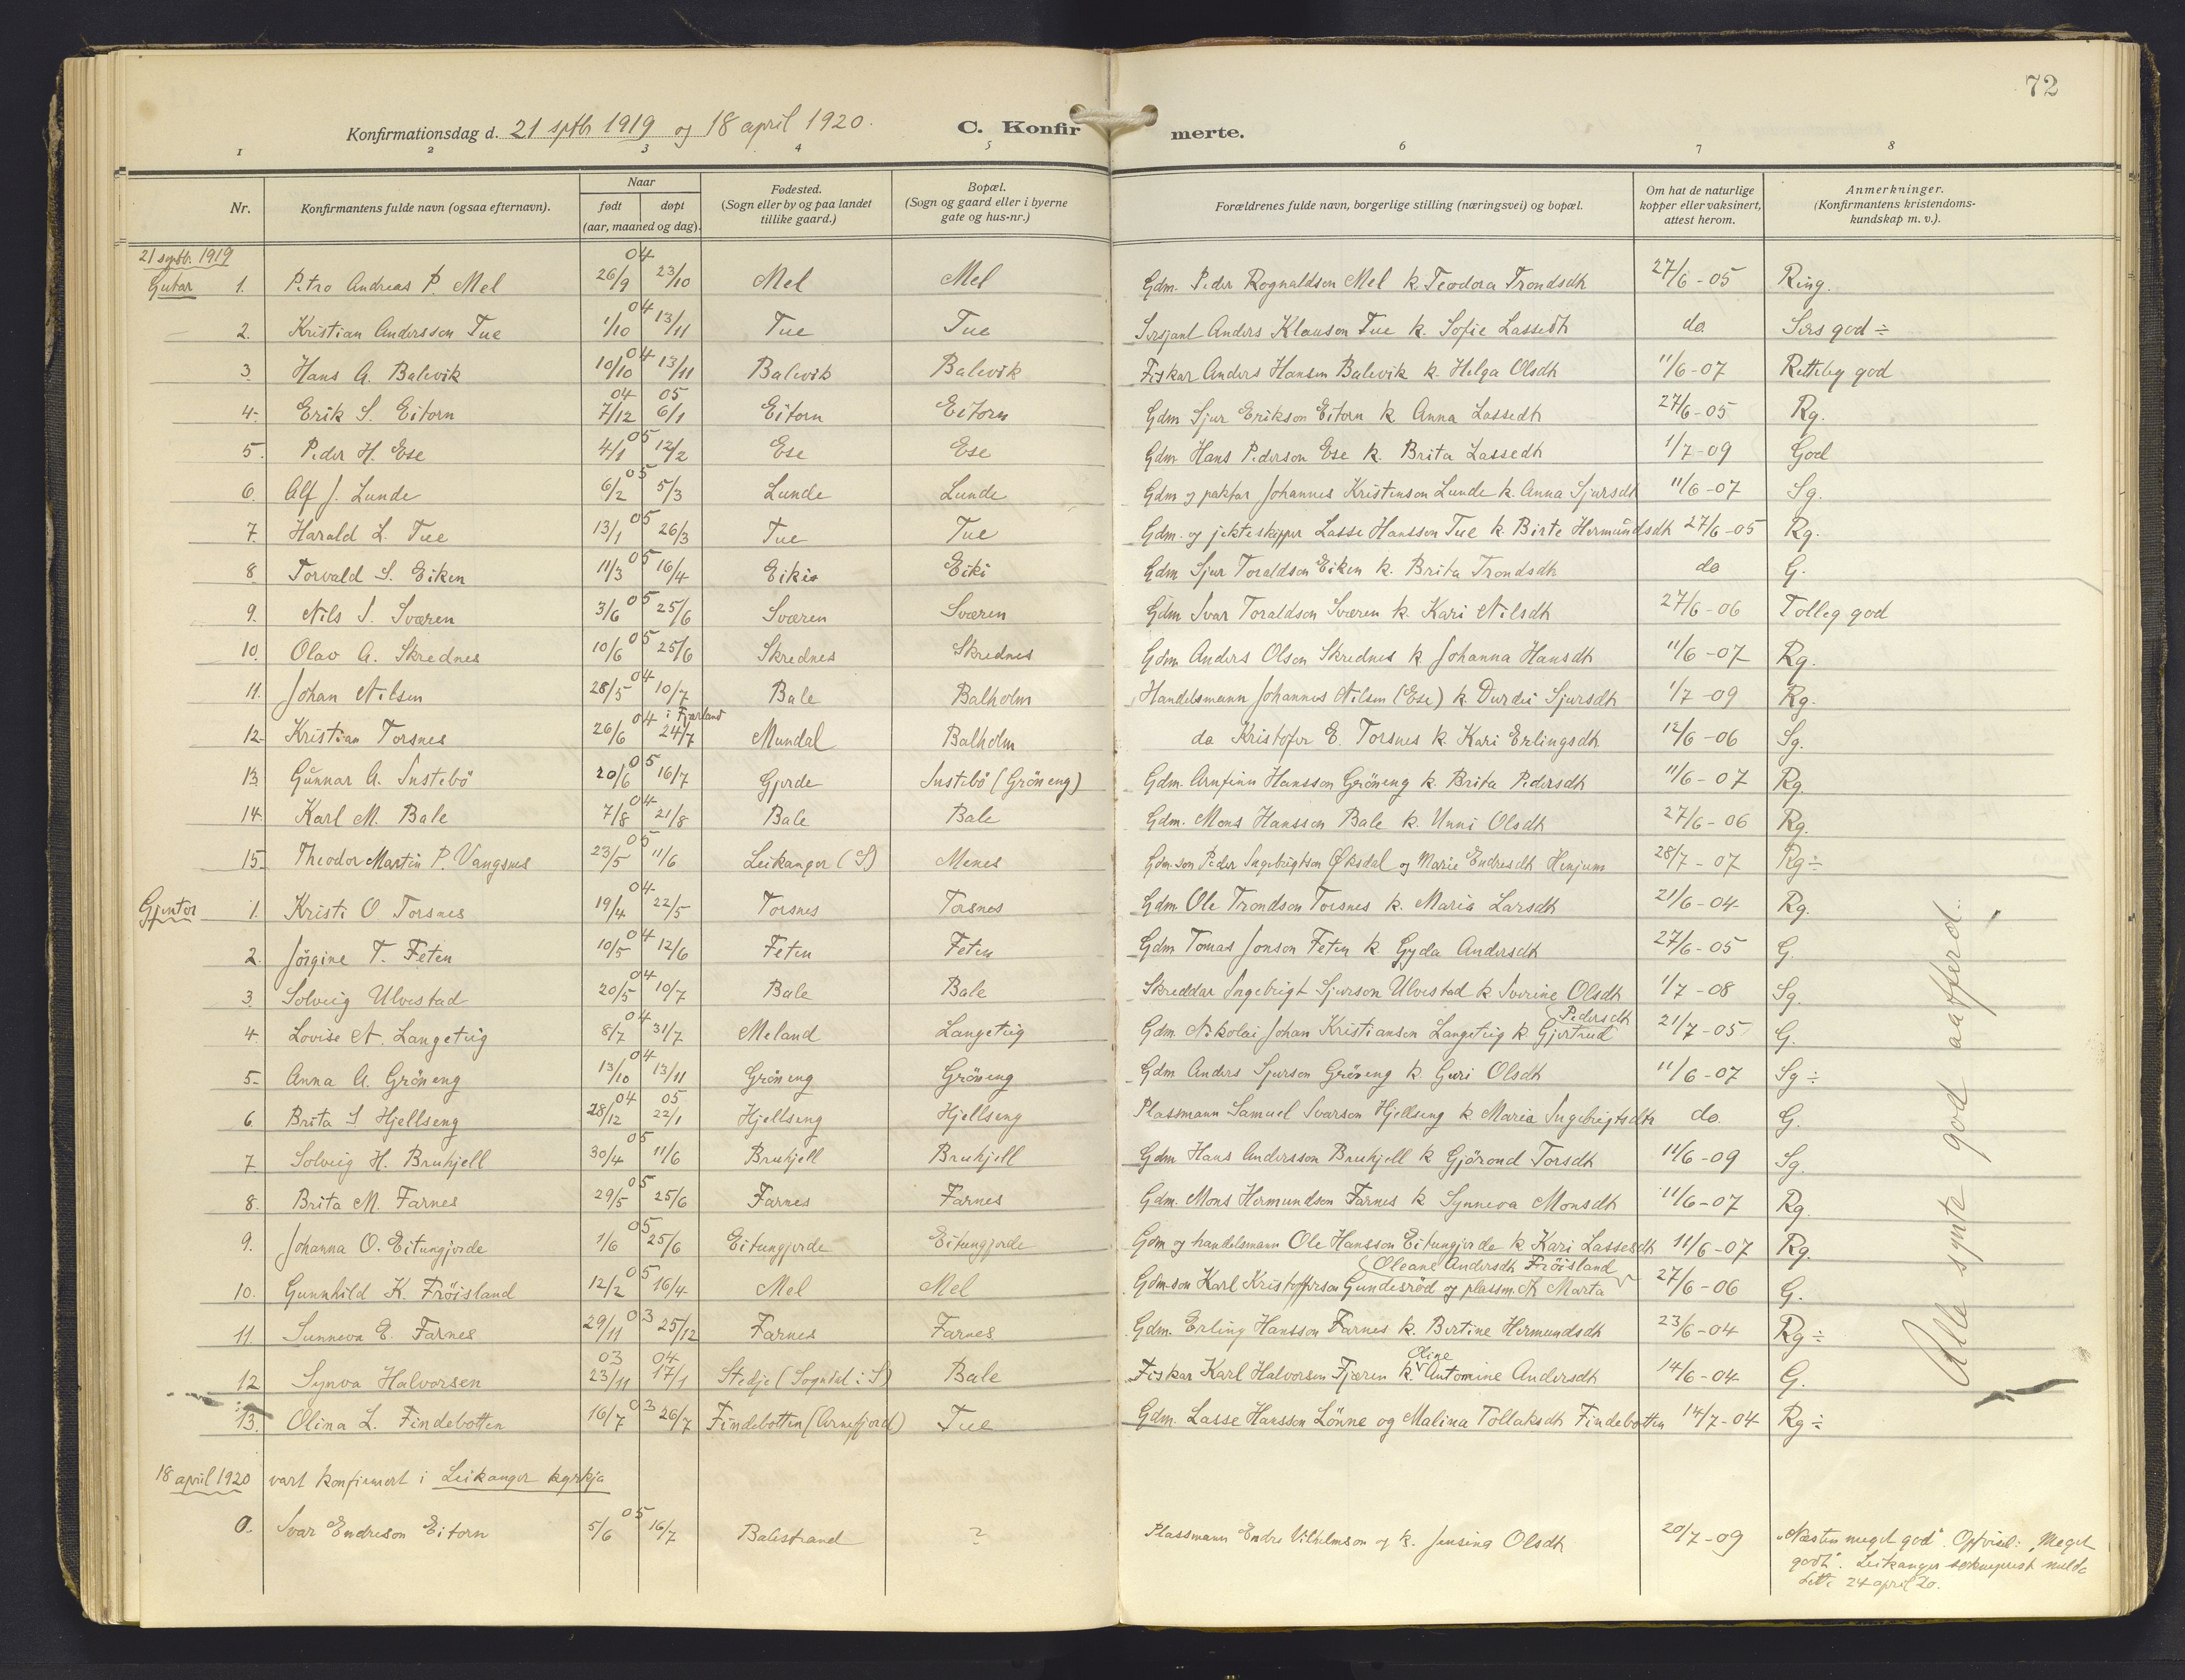 72
Konfirmationsdag d. 21 sptb 1919 og 18 april 1920. C. Konfirmerte.
1 2 3 4 5 6 7 8
Nr. Konfirmantens fulde navn (ogsaa efternavn). Naar født døpt (aar, maaned og dag). Fødested. (Sogn eller by og paa landet tillike gaard.) Bopæl. (Sogn og gaard eller i byerne gate og hus-nr.) Forældrenes fulde navn, borgerlige stilling (næringsvei) og bopæl. Om hat de naturlige kopper eller vaksinert, attest herom. Anmerkninger. (Konfirmantens kristendoms- kundskap m. v.).
21 septb. 1919
Gutar 1. Petro Andreas P. Mel 26/9 04 23/10 Mel Mel Gdm. Peder Rognaldson Mel k. Teodora Trondsdh 27/6-05 Ring.
2. Kristian Andersson Tue 1/10 04 13/11 Tue Tue Anders Klauson Tue k. Sofie Lassedh do Sers god ÷
3. Hans A. Balevik 10/10 04 13/11 Balevik Balevik Fiskar Anders Hansen Balevik k. Helga Olsdh 11/6-07 Retteleg god
4. Erik S. Eitorn 7/12 04 6/1 05 Eitorn Eitorn Gdm Sjur Erikson Eitorn k. Anna Lassedh 27/6-05 Rg.
5. Peder H. Ese 4/1 05 12/2 Ese Ese Gdm Hans Pederson Ese k. Brita Lassedh 1/7-09 God
6. Alf J. Lunde 6/2 05 5/3 Lunde Lunde Gdm og paktar Johannes Kristenson Lunde k. Anna Sjursdh 11/6-07 Sg.
7. Harald L. Tue 13/1 05 26/3 Tue Tue Gdm. og jekteskipper Lasse Hansson Tue k. Birte Hermundsdh 27/6-05 Rg.
8. Torvald S. Eiken 11/3 05 16/4 Eiki Eiki Gdm Sjur Toraldson Eiken k. Brita Trondsdh do G.
9. Nils I. Sværen 3/6 05 25/6 Sværen Sværen Gdm Ivar Toraldson Sværen k. Kari Nilsdh 27/6-06 Tolleg god
10. Olav A. Skrednes 10/6 05 25/6 Skrednes Skrednes Gdm. Anders Olson Skrednes k. Johanna Hansdh 11/6-07 Rg.
11. Johan Nilsen 28/5 04 10/7 Bale Balholm Handelsmann Johannes Nilsen (Ese) k. Durdei Sjursdh 1/7-09 Rg.
12. Kristian Torsnes 26/6 04 i Fjærland 24/7 Mundal Balholm do Kristofer E. Torsnes k. Kari Erlingsdh 12/6-06 Sg.
13. Gunnar A. Instebö 20/6 05 16/7 Gjerde Instebö (Gröneng) Gdm. Arnfinn Hansson Gröneng k. Brita Pedersdh 11/6-07 Rg.
14. Karl M. Bale 7/8 04 21/8 Bale Bale Gdm. Mons Hansson Bale k. Unni Olsdh 27/6-06 Rg.
15. Theodor Martin P. Vangsnes 23/5 05 11/6 Leikanger (S) Menes Gdm.son Peder Ingebrigtson Øksdal og Marie Endresdh Henjum 28/7-07 Rg ÷
Gjentor 1. Kristi O. Torsnes 19/4 04 22/5 Torsnes Torsnes Gdm. Ole Trondson Torsnes k. Maria Larsdh 21/6-04 Rg.
2. Jörgine T. Feten 10/5 04 12/6 Feten Feten Gdm Tomas Jonson Feten k. Gyda Andersdh 27/6-05 G.
3. Solveig Ulvestad 20/5 04 10/7 Bale Bale Skreddar Ingebrigt Sjurson Ulvestad k Severine Olsdh 1/7-08 Sg.
4. Lovise N. Langeteig 8/7 04 31/7 Meland Langeteig Gdm. Nikolai Johan Kristiansen Langeteig k Gjertrud Pedersdh 21/7-05 G.
5. Anna A. Gröneng 13/10 04 13/11 Gröneng Gröneng Gdm Anders Sjurson Gröneng k. Guri Olsdh 11/6-07 Sg ÷
6. Brita S Hjellseng 28/12 04 22/1 05 Hjellseng Hjellseng Plassmann Samuel Ivarson Hjellseng k. Maria Ingebrigtsdh do. G.
7. Solveig H. Bruhjell 30/4 05 11/6 Bruhjell Bruhjell Gdm Hans Andersson Bruhjell k Gjörond Torsdh 11/6-09 Sg.
8. Brita M. Farnes 29/5 05 25/6 Farnes Farnes Gdm. Mons Hermundson Farnes k Synneva Monsdh 11/6-07 Rg.
9. Johanna O. Eitungjerde 1/6 05 25/6 Eitungjerde Eitungjerde Gdm og handelsmann Ole Hansson Eitungjerde k Kari Lassesdh 11/6-07 Rg.
10. Gunnhild K. Fröisland 12/2 05 16/4 Mel Mel Gdm.son Karl Kristofferson Gundersröd og plassm. Marta Oleane Andersdh Fröisland 27/6-06 G.
11. Sunneva E. Farnes 29/11 03 25/12 Farnes Farnes Gdm. Erling Hansson Farnes k. Bertine Hermundsdh 23/6-04 Rg ÷
12. Synva Halvorsen 23/11 03 17/1 04 Stedje (Sogndal i S) Bale Fiskar Karl Halvorsen Fjæren k. Oline Antomine Andersdh 14/6-04 G.
13. Olina L. Findebotten 16/7 03 26/7 Findebotten (Arnefjord) Tue Gdm. Lasse Hansson Lönne og Malina Tollaksdh Findebotten 14/7-04 Rg ÷
Alle synte god aafferd.
18 april 1920 vart konfirmert i Leikanger kyrkja
0. Ivar Endreson Eitorn 5/6 05 16/7 Balestrand ? Plassmann Endre Vilhelmson og k. Jensina Olsdh 20/7-09 "Næsten meget god". Opförsel: "Meget
godt". Leikanger sokneprest melde
dette 24 april 20.